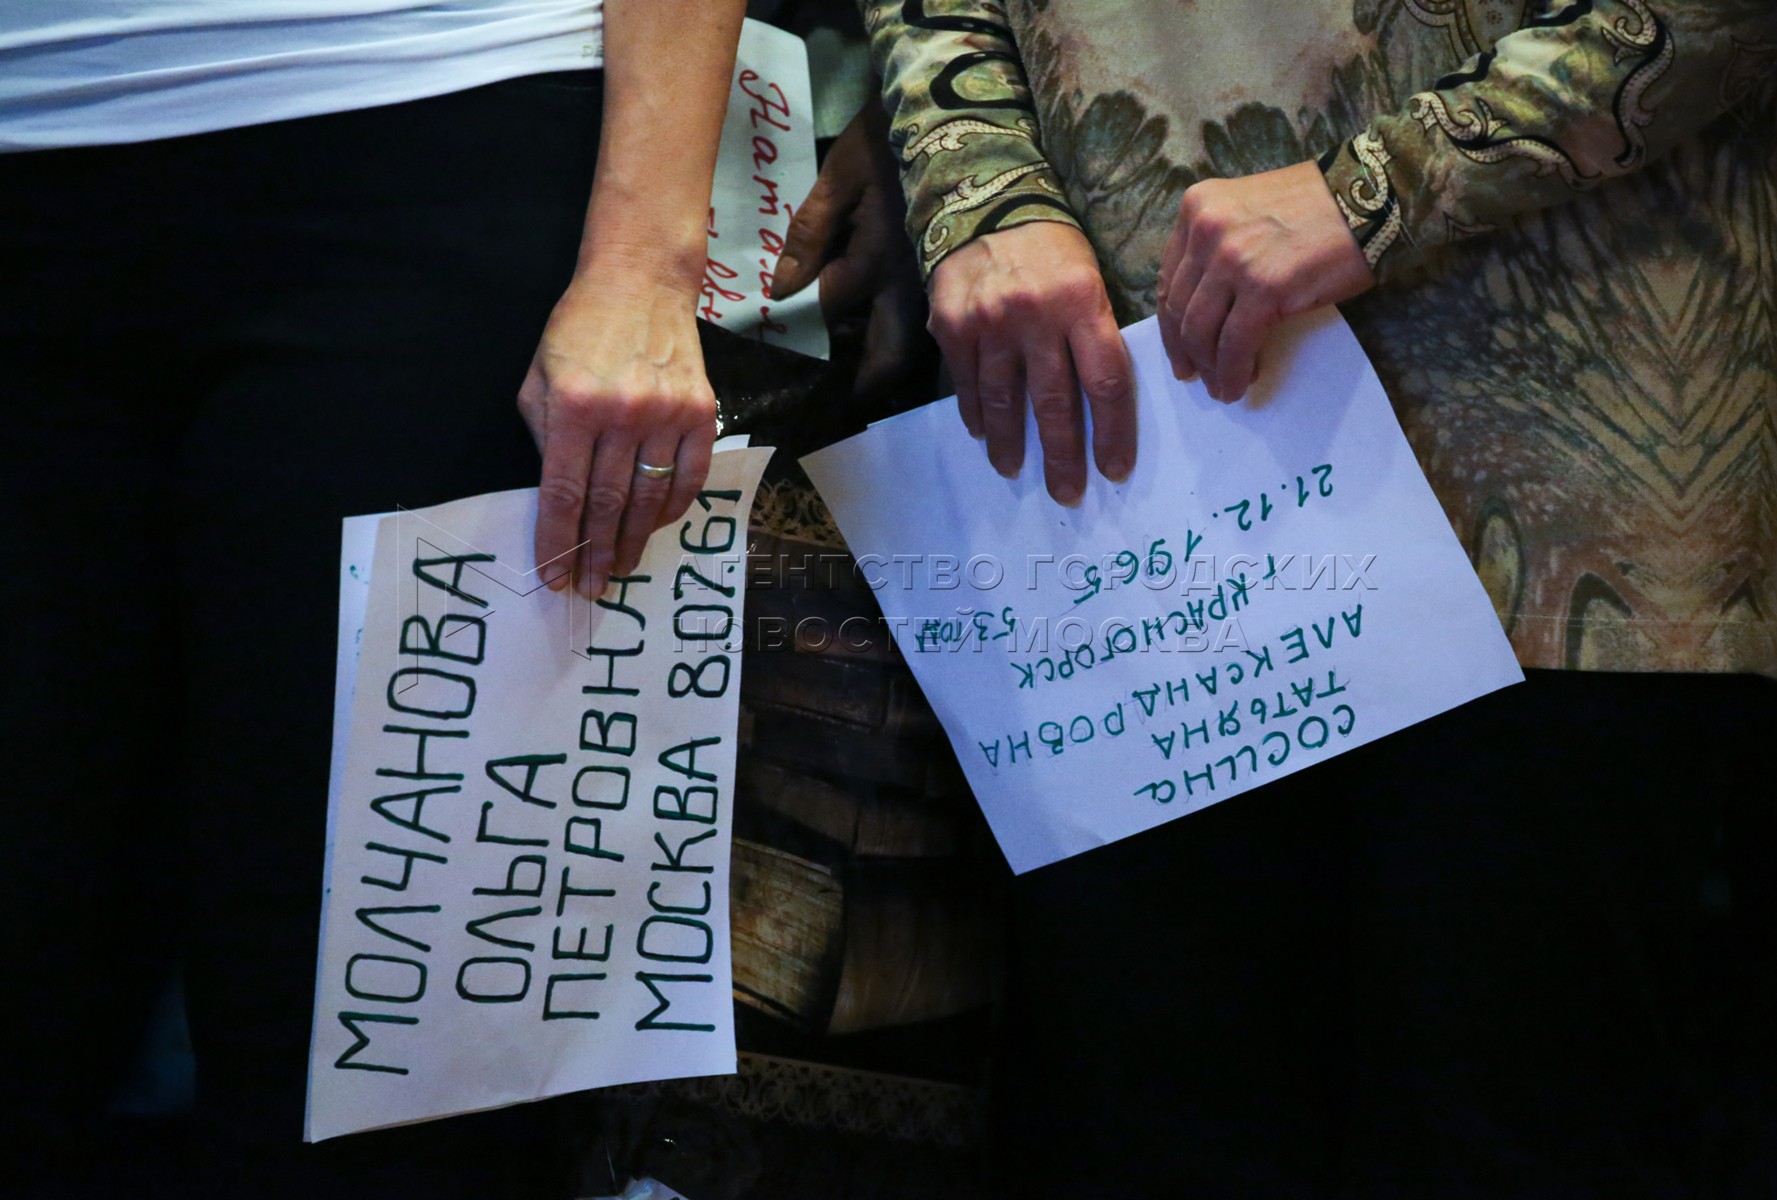 Наталья
МОЛЧАНОВА
ОЛЬГА
ПЕТРОВНА
МОСКВА 8.07.61
СОСИНА
ТАТЬЯНА
АЛЕКСАНДРОВНА
г КРАСНОГОРСК
21.12.1965
53 года
АГЕНТСТВО ГОРОДСКИХ
НОВОСТЕЙ МОСКВА